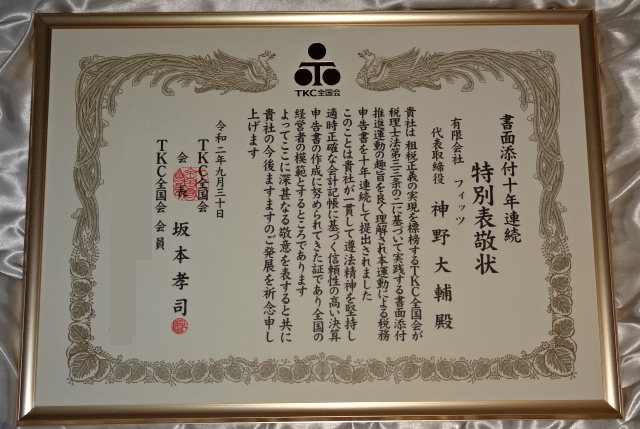 TKC全国会
書面添付十年連続
特別表敬状
有限会社 フィッツ
代表取締役 神野大輔殿
貴社は租税正義の実現を標榜するTKC全国会が
税理士法第三三条の二に基づいて実践する書面添付
推進運動の趣旨を良く理解され本運動による税務
申告書を十年連続して提出されました
このことは貴社が一貫して遵法精神を堅持し
適時正確な会計記帳に基づく信頼性の高い決算
申告書の作成に努められてきた証であり全国の
経営者の模範とするところであります
よってここに深甚なる敬意を表すると共に
貴社の今後ますますのご発展を祈念申し
上げます
令和二年九月三十日
TKC全国会
会長 坂本孝司
TKC全国会会員